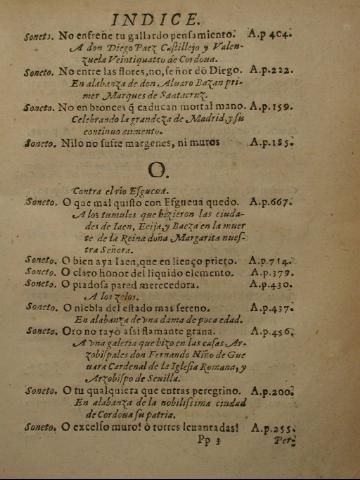 INDICE.
Soneto. No enfreñe tu gallardo pensamiento. A.p 404.
A don Diego Paez Castillejo y Valen-
zuela Veintiquatro de Cordoua.
Soneto. No entre las flores, no, señor dõ Diego. A.p.222.
En alabança de don Alvaro Bazan pri-
mer Marques de Santacruz.
Soneto. No en bronces q̃ caducan mortal mano. A.p.159.
Celebrando la grandeza de Madrid, y su
continuo aumento.
Soneto. Nilo no sufre margenes, ni muros A.p.185.
O.
Contra el rio Esgueua.
Soneto. O que mal quisto con Esgueua quedo. A.p.667.
A los tumulos que hizieron las ciuda-
des de Iaen, Ecija, y Baeza en la muer
te de la Reina doña Margarita nues-
tra Señora.
Soneto. O bien aya Iaen, que en lienço prieto. A.p.714.
Soneto. O claro honor del liquido elemento. A.p.379.
Soneto. O piadosa pared merecedora. A.p.430.
A los zelos.
Soneto. O niebla del estado mas sereno. A.p.437.
En alabança de vna dama de poca edad.
Soneto. Oro no rayó assi flamante grana. A.p.456.
A vna galeria que hizo en las casas Ar-
zobispales don Fernando Niño de Gue
uara Cardenal de la Iglesia Romana, y
Arzobispo de Seuilla.
Soneto. O tu qualquiera que entras peregrino. A.p.200.
En alabança de la nobilissima ciudad
de Cordoua su patria.
Soneto. O excelso muro! ò torres leuantadas! A.p.255.
Pp 3 Per